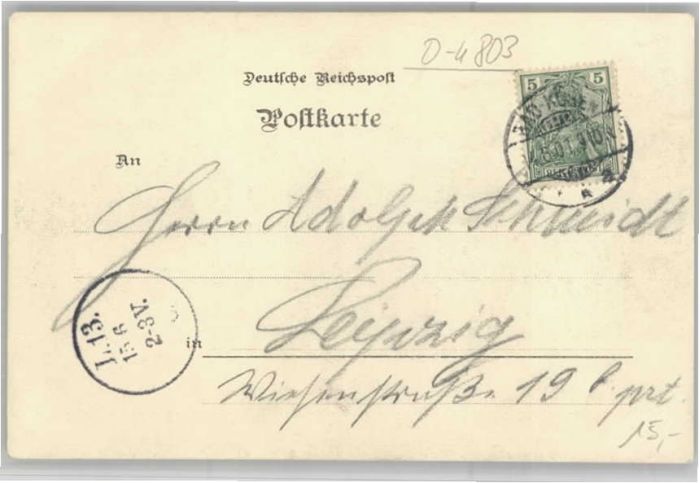 D-4803
Deutsche Reichspost
Postkarte
5 5
BAD KÖSEN
An
Herrn Adolph Schmidt
in Leipzig
Wiesenstraße 19 b. prt.
L.13.
15 6
2-3V.
15,-